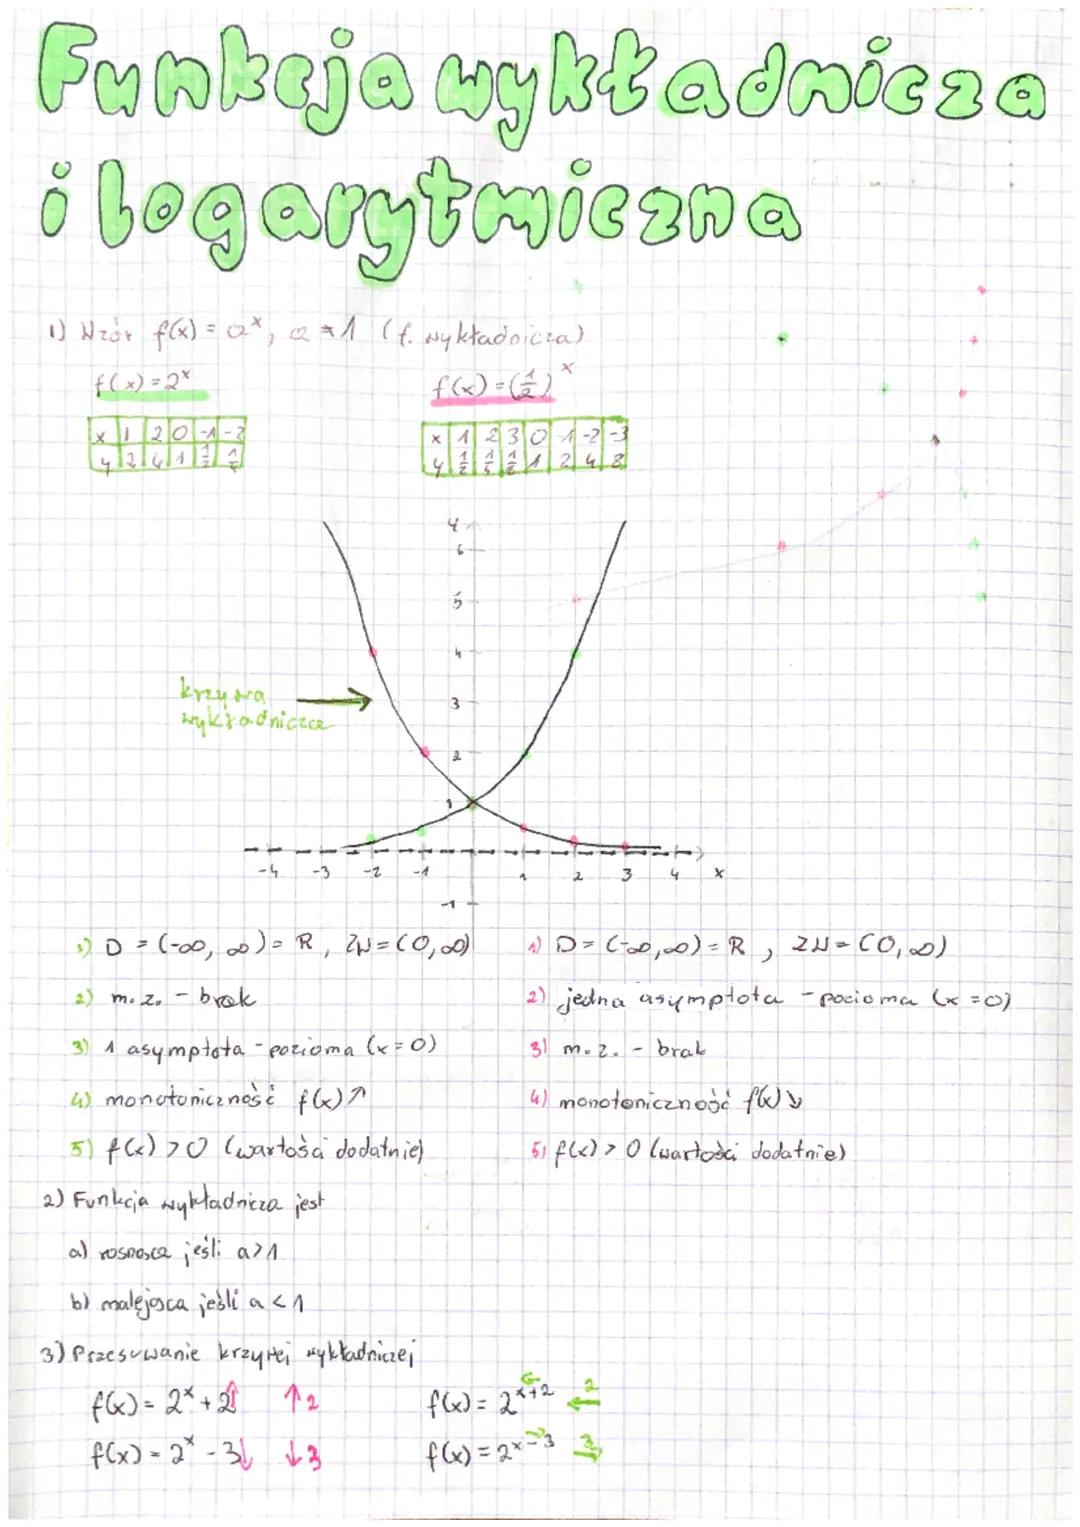 Funkcja wykładnicza
i logarytmiczna
1) Wzór f(x) = a^x, a ≠ 1 (f. wykładnicza)
f(x) = 2^x
f(x) = (1/2)^x
x 1 2 0 -1 -2
y 2 4 1 1/2 1/4
x 1 2 3 0 -1 -2 -3
y 1/2 1/4 1/8 1 2 4 8
y
6
5
4
3
2
1
krzywa
wykładnicza
-4 -3 -2 -1 1 2 3 4 x
-1
1) D = (-∞, ∞) = R, ZW = (0, ∞)
2) m. z. - brak
3) 1 asymptota - pozioma (x = 0)
4) monotoniczność f(x) ↗
5) f(x) > 0 (wartości dodatnie)
1) D = (-∞, ∞) = R, ZW = (0, ∞)
2) jedna asymptota - pozioma (x = 0)
3) m. z. - brak
4) monotoniczność f(x) ↘
5) f(x) > 0 (wartości dodatnie)
2) Funkcja wykładnicza jest
a) rosnąca jeśli a > 1
b) malejąca jeśli a < 1
3) Przesuwanie krzywej wykładniczej
f(x) = 2^x + 2↑ ↑2
f(x) = 2^(x+2) ← 2
f(x) = 2^x - 3↓ ↓3
f(x) = 2^(x-3) → 3